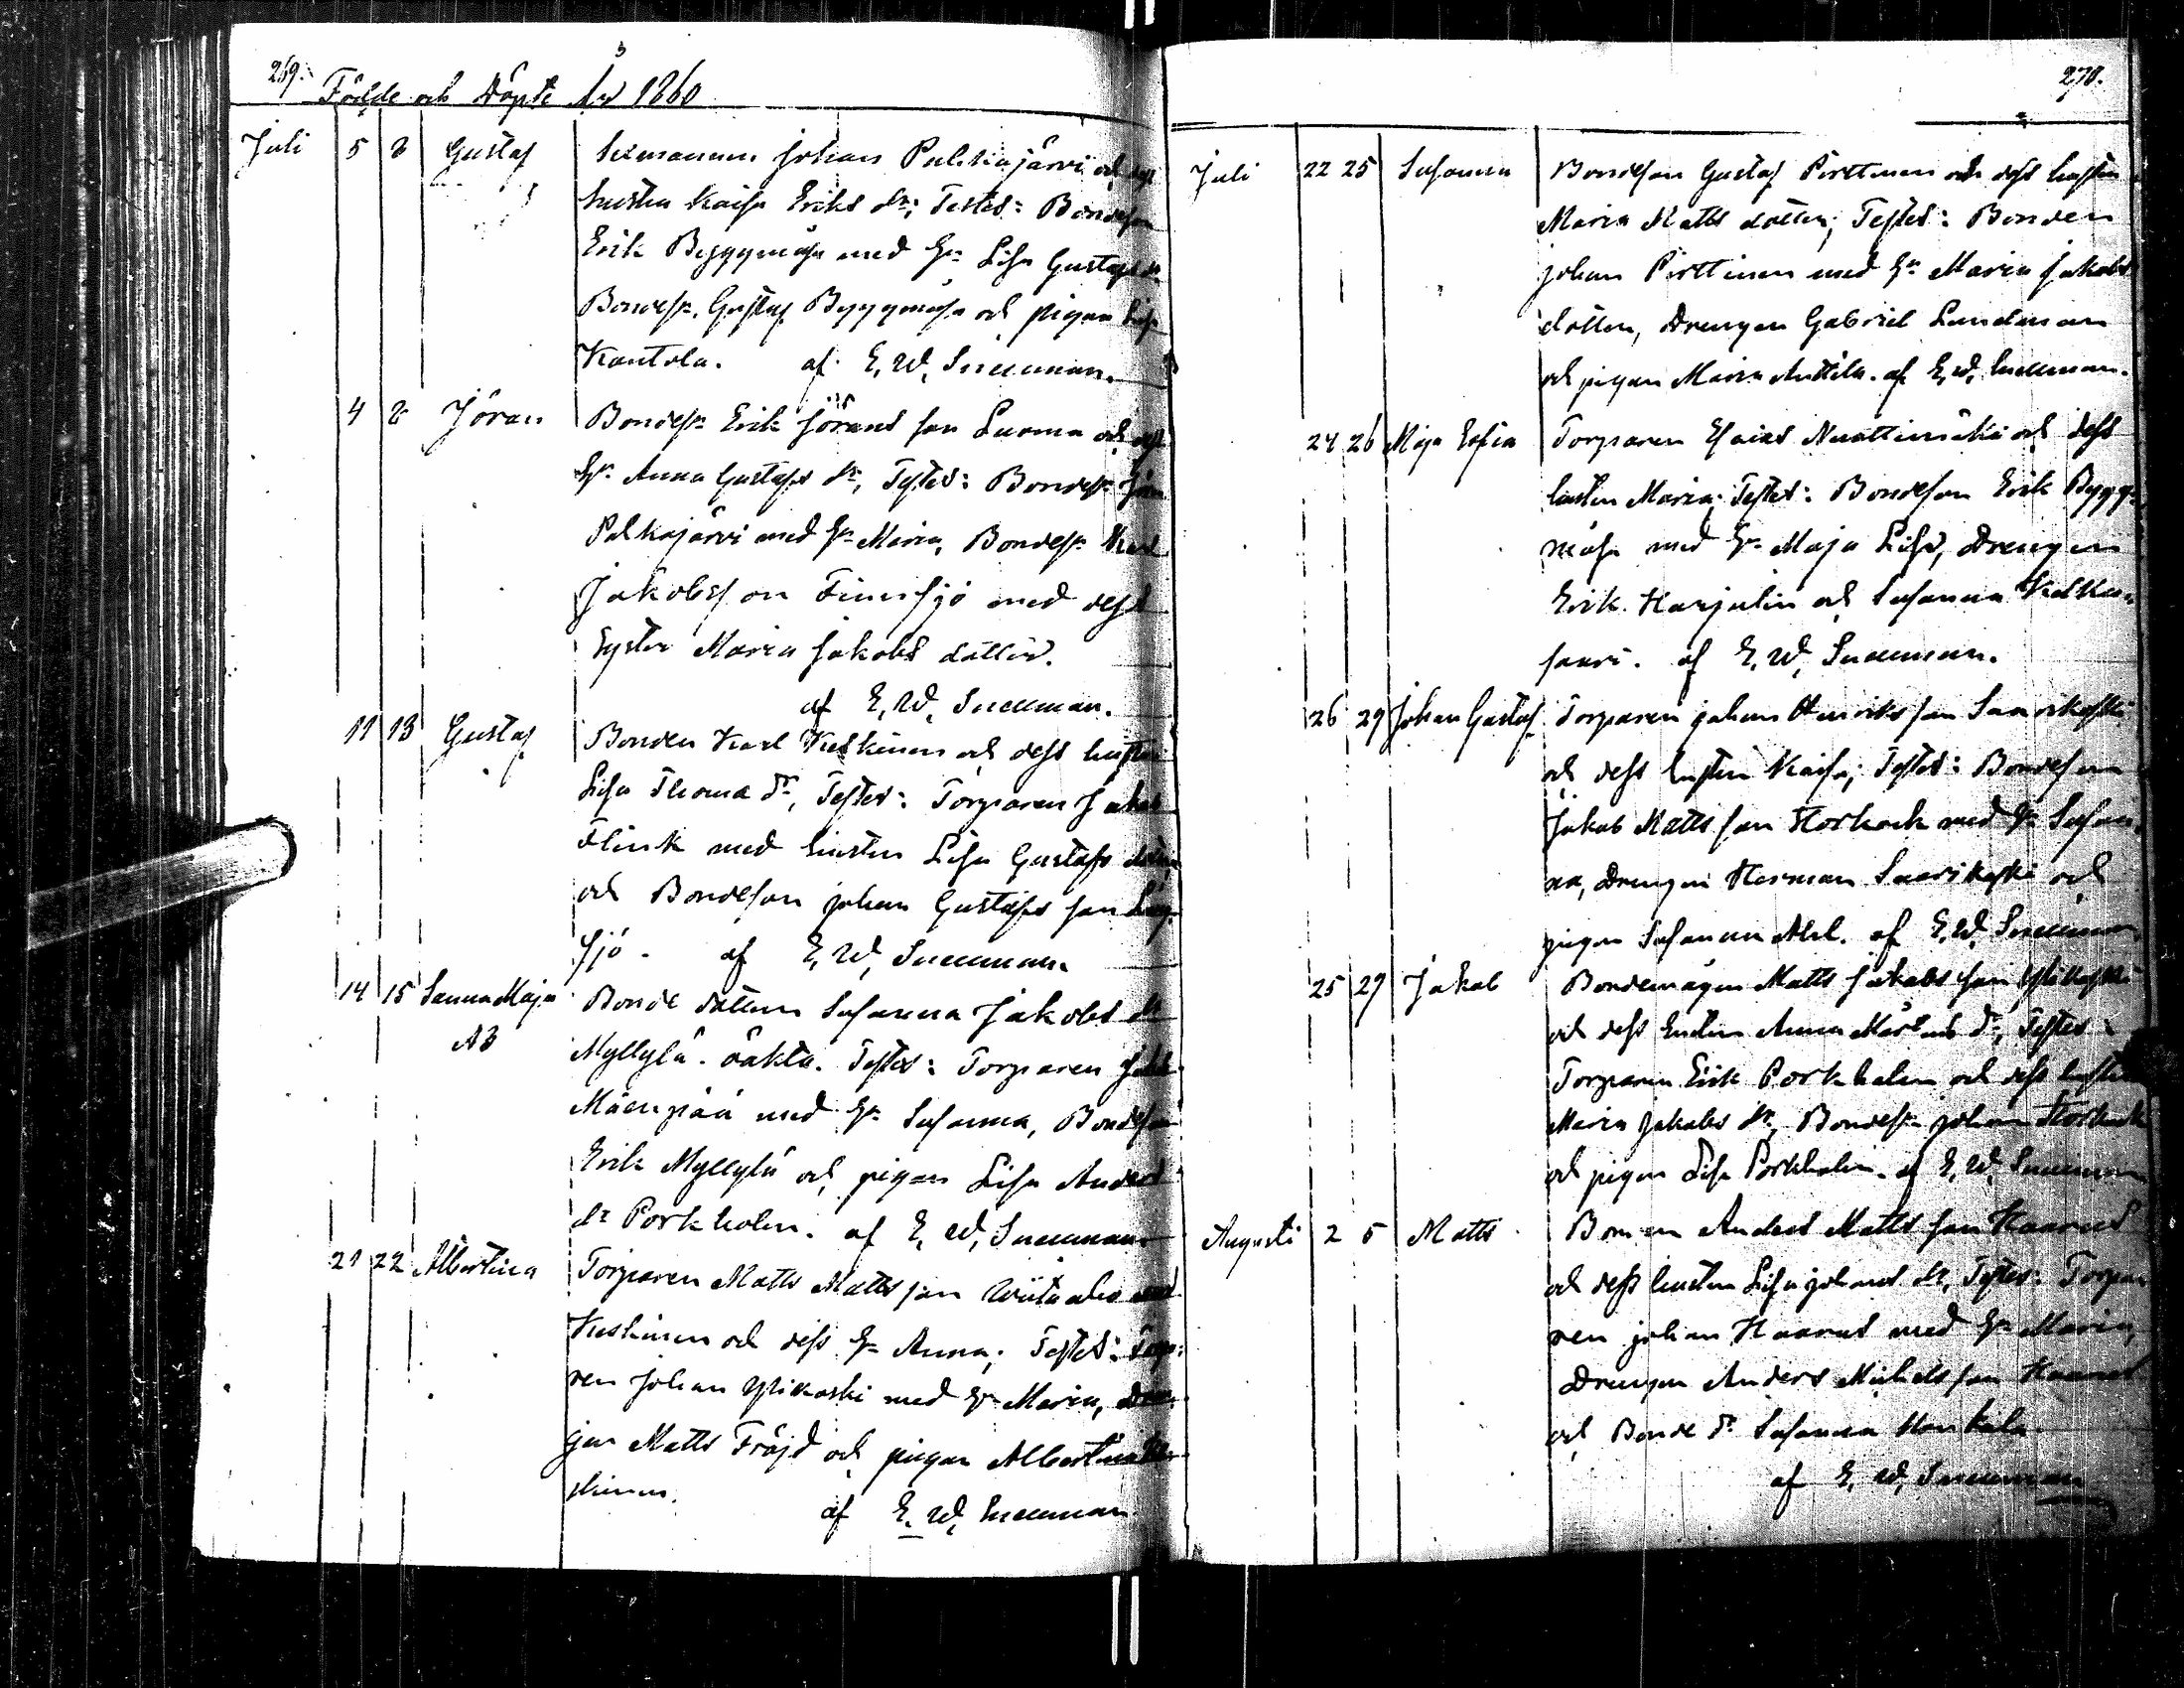 269.
Födde och Döpte År 1860
Juli 5 8 Gustaf Johan Palkajärvi och dess
hustru Kaisa Eriks dr; Testes: Bondeson
Erik Byggmäsa med H. Lisa Gustafs dr
Bondes. Gustaf Byggmäsa och pigan Lisa
Kantola. af E, W, Snellman.
4 8 Jöran Bondes. Erik Jörans son Luoma och dess
H. Anna Gustafs dr, Testes: Bondes. Jöran
Palkajärvi med H. Maria, Bondes. Karl
Jakobsson Finnsjö med dess
Syster Maria Jakobs dotter.
af E, W, Snellman.
11 13 Gustaf Bonden Karl Keskinen och dess hustru
Lisa Thomas dr, Testes: Torparen Jakob
Flink med hustru Lisa Gustafs dotter
och Bondeson Johan Gustafs son Lång-
sjö. af E, W, Snellman.
14 15 Sanna Maja Bonde dottren Susanna Jakobs dr
AB Myllylä. oäkta. Testes: Torparen Jakob
Mäenpää med H. Susanna, Bondeson
Erik Myllylä och pigan Lisa Anders
dr Porkholm. af E, W, Snellman
21 22 Albertina Torparen Matts Matts son Wiitaaho
Keskinen och dess H. Anna; Testes: Torpa-
ren Johan Ylikoski med H. Maria, drän-
gen Matts Fröjd och pigan Albertina Ke-
skinen.
af E. W, Snellman
270.
Juli 22 25 Susanna Bondeson Gustaf Pirttinen och dess hustru
Maria Matts dotter; Testes: Bonden
Johan Pirttinen med H. Maria Jakobs
dotter, Drengen Gabriel Lundman
och pigan Maria Anttila. af E, W, Snellman.
24 26 Maja Sofia Torparen Esaias Nuottimäki och dess
hustru Maria; Testes: Bondeson Erik Bygg-
mäsa med H. Maja Lisa, Drengen
Erik Harjulin och Susanna Kalka-
saari. af E, W, Snellman.
26 29 Johan Gustaf Torparen Johan Henriks son Saarikoski
och dess hustru Kaisa; Testes: Bondeson
Jakob Matts son Storback med H. Susan-
na, Drengen Herman Saarikoski och
pigan Susanna Ahl. af E, W, Snellman.
25 29 Jakob Bondemågen Matts Jakobs son Ylikoski
och dess hustru Anna Mårtens dr, Testes:
Torparen Erik Porkholm och dess hustru
Maria Jakobs dr, Bondes. Johan Storback
och pigan Lisa Porkholm. af E, W, Snellman
Augusti 2 5 Matts Bonden Anders Matts son Haarus
och dess hustru Lisa Johans dr, Testes: Torpa-
ren Johan Haarus med H. Maria,
Drengen Anders Michels son Haarus
och Bonde dr Susanna Honkala.
af E, W, Snellman